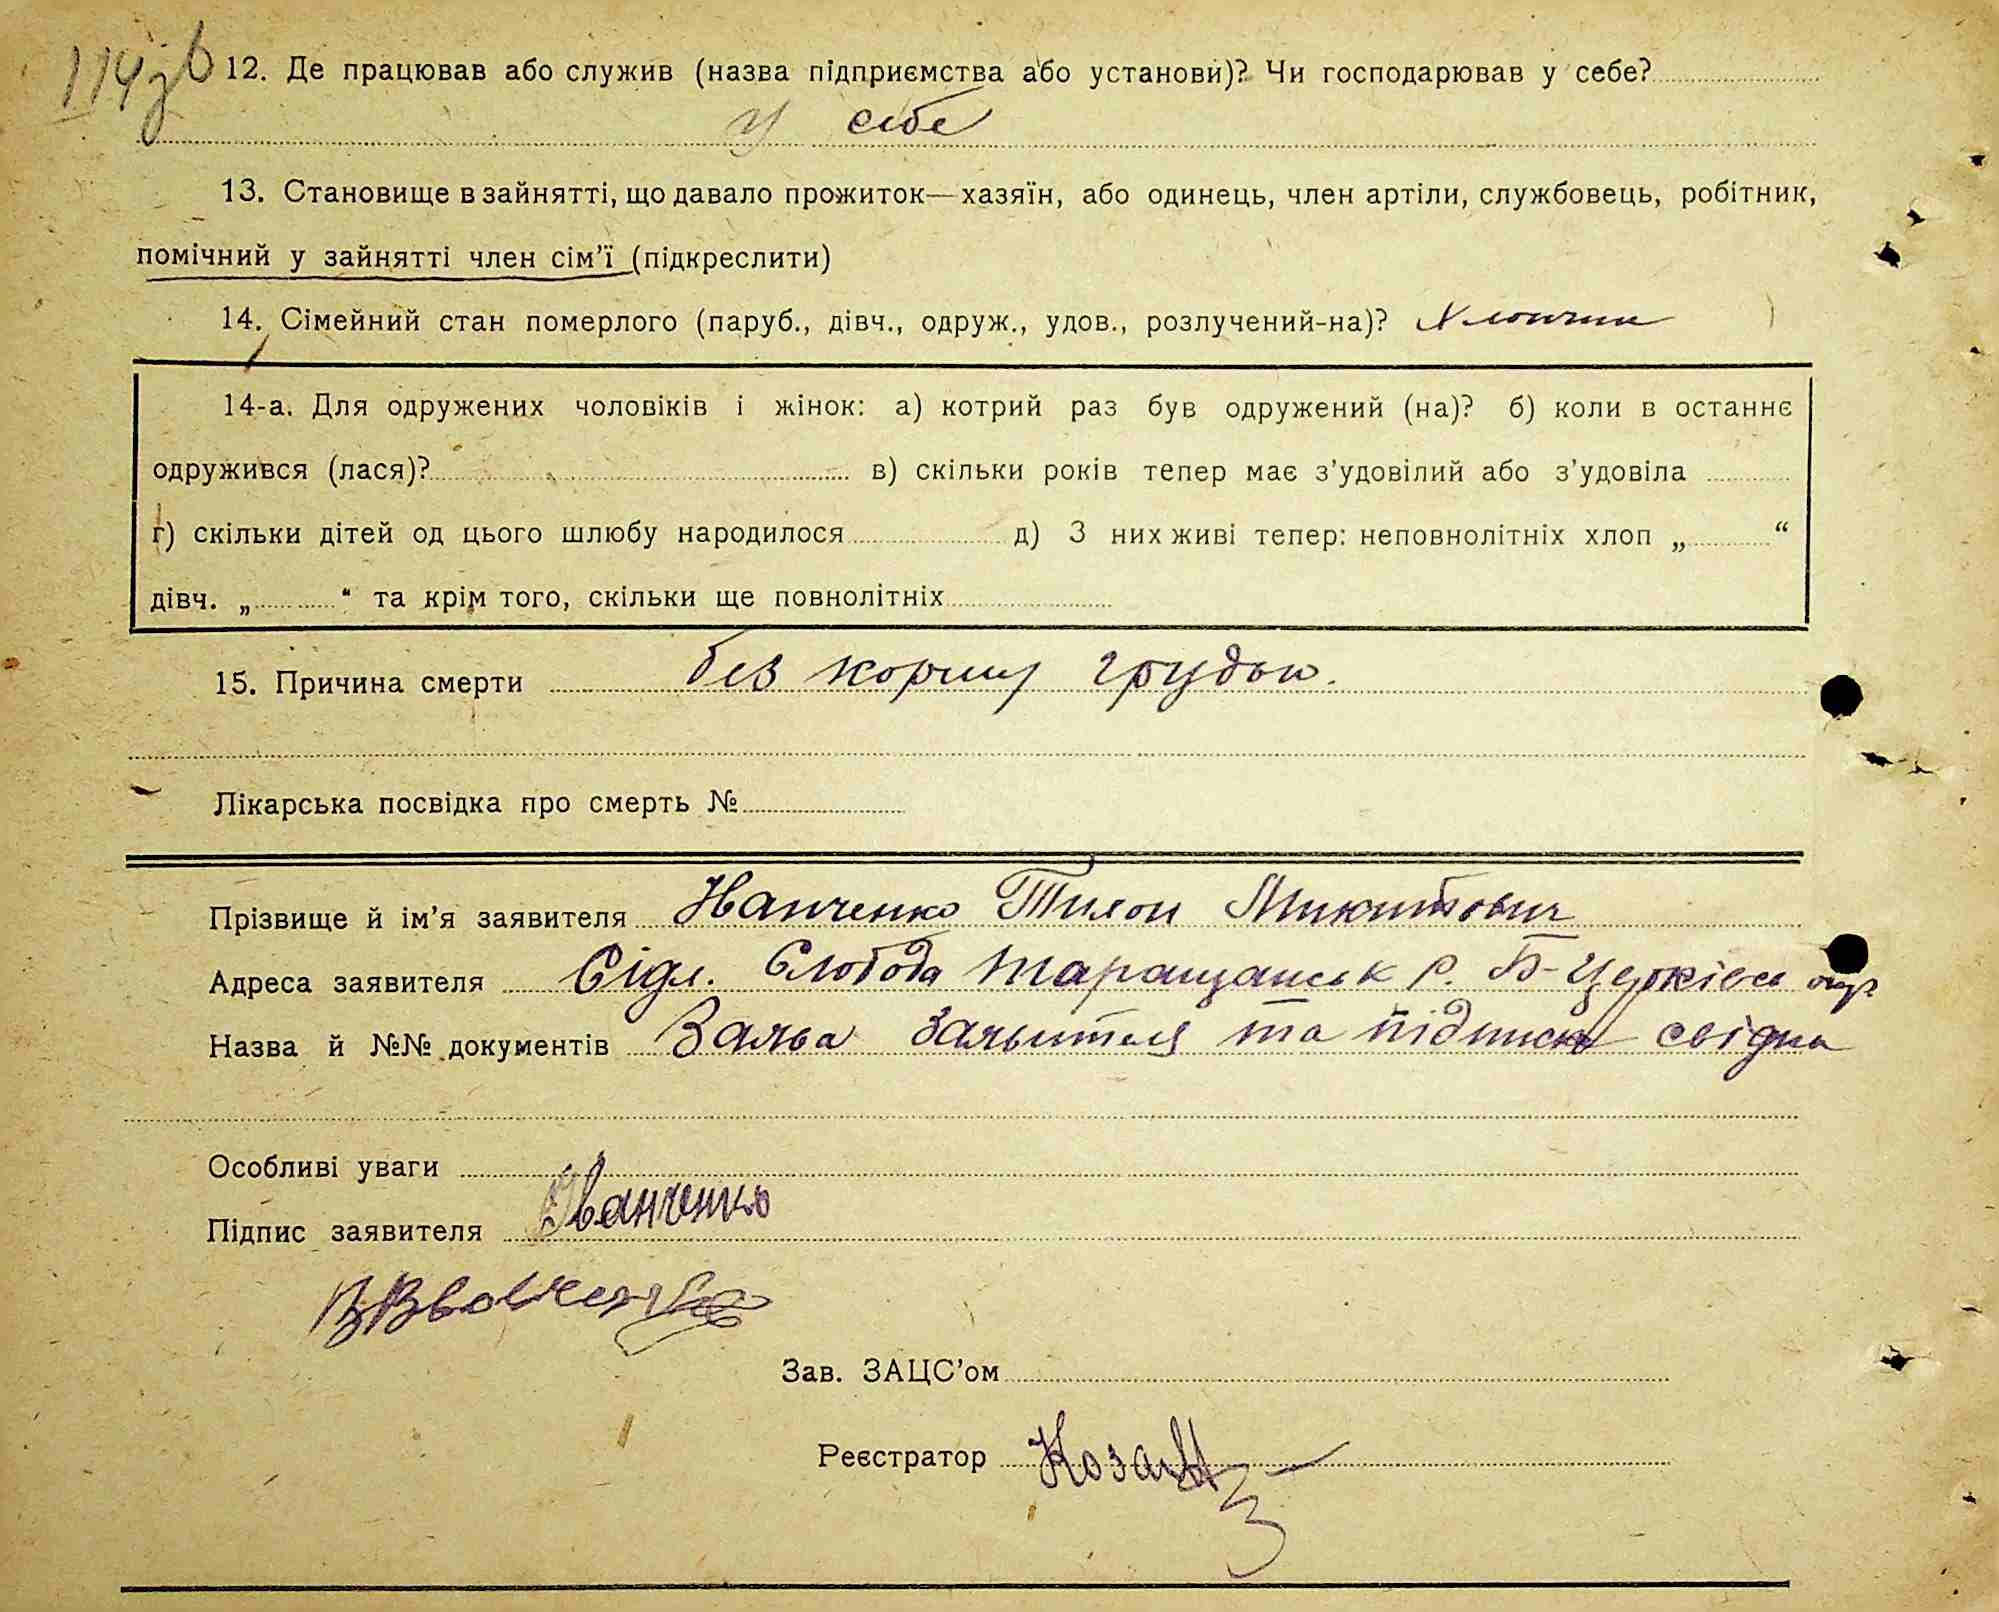 114 зв
12. Де працював або служив (назва підприємства або установи)? Чи господарював у себе?
у себе
13. Становище в зайнятті, що давало прожиток—хазяїн, або одинець, член артіли, службовець, робітник,
помічний у зайнятті член сім'ї (підкреслити)
14. Сімейний стан померлого (паруб., дівч., одруж., удов., розлучений-на)? Хлопчик
14-а. Для одружених чоловіків і жінок: а) котрий раз був одружений (на)? б) коли в останнє
одружився (лася)? в) скільки років тепер має з'удовілий або з'удовіла
г) скільки дітей од цього шлюбу народилося д) З них живі тепер: неповнолітніх хлоп „ “
дівч. „ “ та крім того, скільки ще повнолітніх
15. Причина смерти без корму грудью.
Лікарська посвідка про смерть №
Прізвище й ім'я заявителя Иванченко Тихон Микитович
Адреса заявителя Сідл. Слобода Таращанськ р. Б-Церківсь окр
Назва й №№ документів Заява заявителя та підписи свідка
Особливі уваги
Підпис заявителя Іванченко
Зав. ЗАЦС'ом
Реєстратор